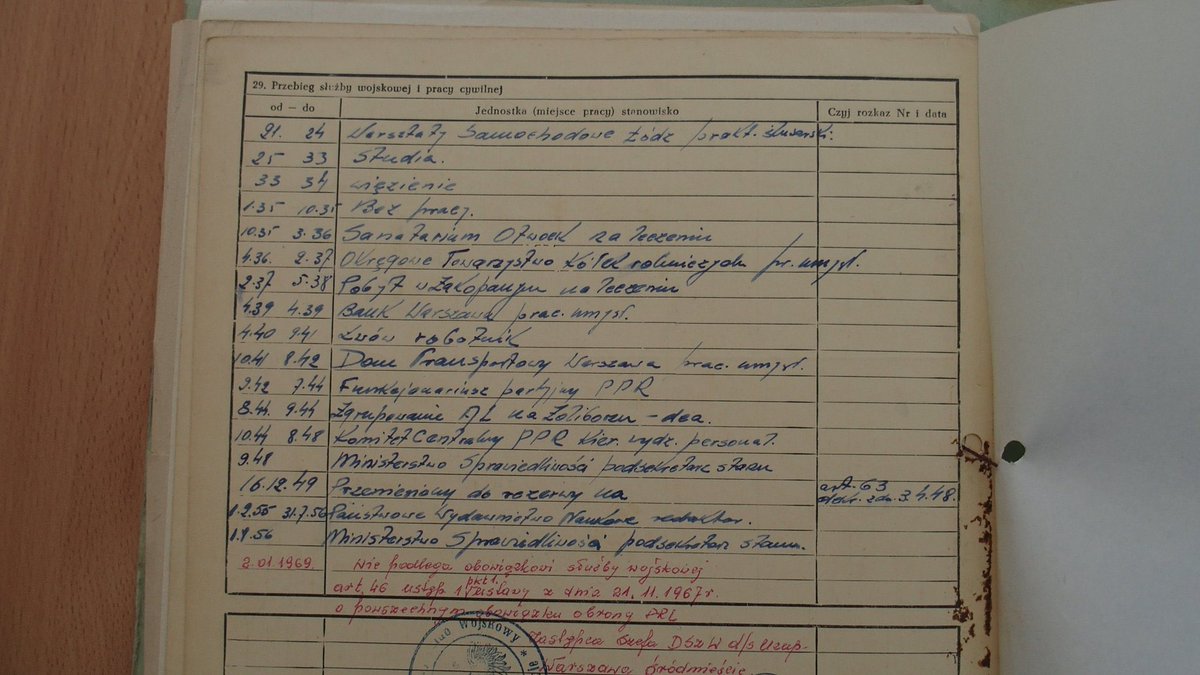 29. Przebieg służby wojskowej i pracy cywilnej
od — do Jednostka (miejsce pracy) stanowisko Czyj rozkaz Nr i data
21. 24 Warsztaty Samochodowe Łódź prakt. ślusarski.
25 33 Studia.
33 34 więzienie
1.35 10.35 Bez pracy.
10.35 3.36 Sanatarium Otwock na leczeniu
4.36. 2.37 Okręgowe Towarzystwo Kółek rolniczych pr. umysł.
2.37 5.38 Pobyt w Zakopanym na leczeniu
4.39 4.39 Bank Warszawa prac. umysł.
4.40 9.41 Lwów robotnik
10.41 8.42 Dom Transportowy Warszawa prac. umysł.
9.42 7.44 Funkcjonariusz partyjny PPR
8.44. 9.44 Zgrupowanie AL na Żoliborzu - dca.
10.44 8.48 Komitet Centralny PPR Kier. wydz. personal.
9.48 Ministerstwo Sprawiedliwości podsekretarz stanu
16.12.49 Przeniesiony do rezerwy na art. 63 dekr. z dn. 3.4.48.
1.2.55 31.7.56 Państwowe Wydawnictwo Naukowe redaktor.
1.9.56 Ministerstwo Sprawiedliwości podsekretarz stanu.
2.01.1969. Nie podlega obowiązkowi służby wojskowej
art. 46 ustęp 1 pkt 1. Ustawy z dnia 21.11.1967 r.
o powszechnym obowiązku obrony PRL
WOJSKOWY
Zastępca Szefa DSzW d/s uzup.
Warszawa Śródmieście